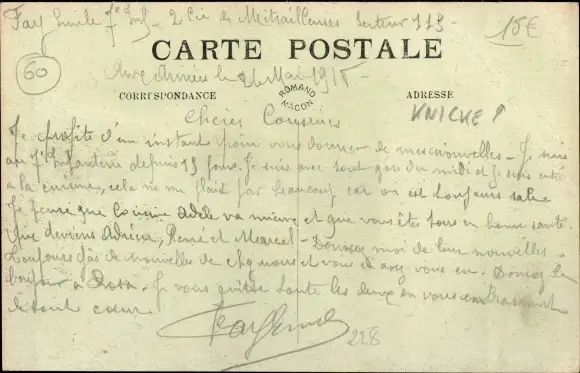 Fay Emile 7e Inf. - 2 Cie de Mitrailleuses Secteur 113 -
15€
CARTE POSTALE
60
Aux Armées le 26 Mai 1915 -
ROMAND MACON
CORRESPONDANCE
ADRESSE
KNICKE !
Chères Cousines
Je profite d'un instant pour vous donner de mes nouvelles - Je suis
au 7e d'Infanterie depuis 15 jours. Je suis avec tout gars du midi et je suis
a la cuisine, cela ne me plait pas beaucoup car on est toujours sale
Je pense que Cousine Adèle va mieux et que vous êtes tous en bonne santé.
Que deviens Adrien, René et Marcel - Donnez moi de leur nouvelles -
Toujours pas de nouvelles de chez nous et vous en avez vous eu. Donnez le
bonjour a Rosa. Je vous quitte toute les deux en vous embrassant
de tout cœur.
Fay Emile
228